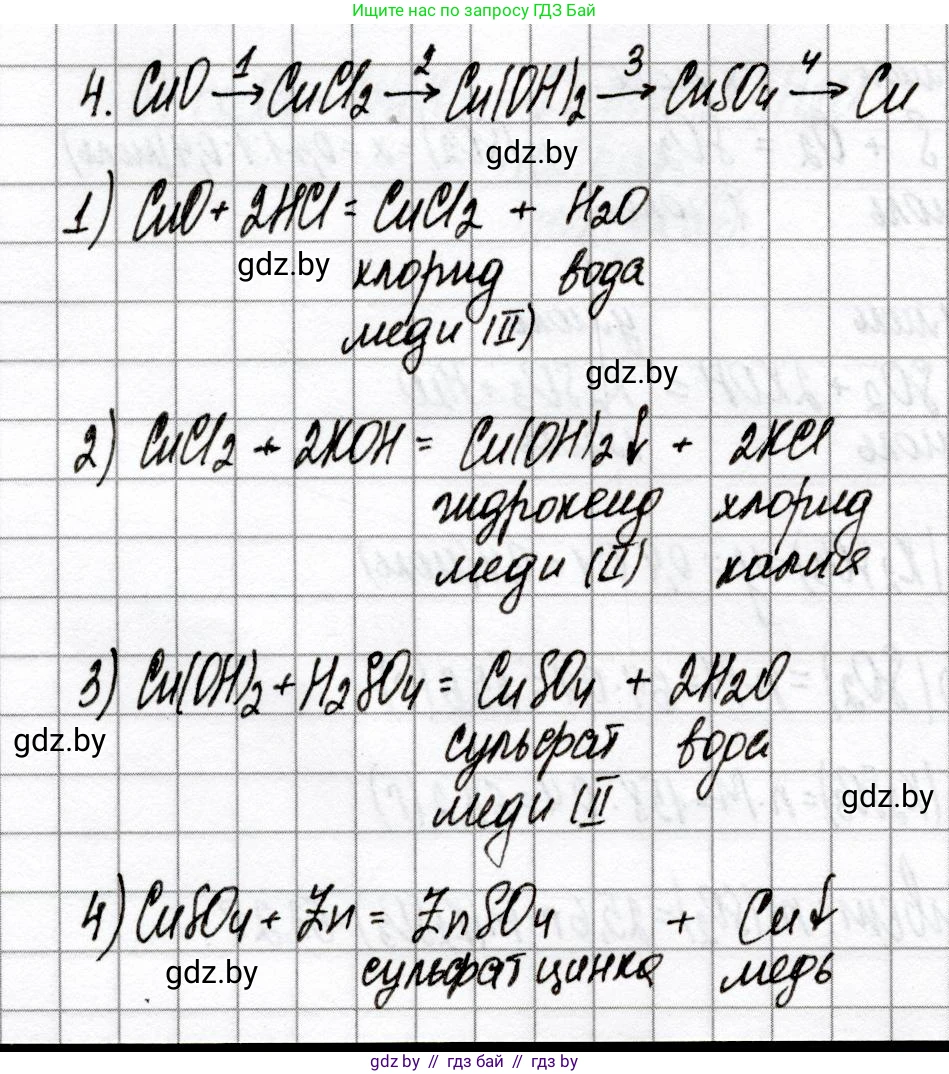 Ищите нас по запросу ГДЗ Бай
4. CuO →1 CuCl₂ →2 Cu(OH)₂ →3 CuSO₄ →4 Cu
gdz.by
1) CuO + 2HCl = CuCl₂ + H₂O
gdz.by хлорид вода
меди (II)
gdz.by
2) CuCl₂ + 2KOH = Cu(OH)₂↓ + 2KCl
гидроксид хлорид
меди (II) калия
3) Cu(OH)₂ + H₂SO₄ = CuSO₄ + 2H₂O
gdz.by сульфат вода
меди (II gdz.by
4) CuSO₄ + Zn = ZnSO₄ + Cu↓
gdz.by сульфат цинка медь
gdz.by // гдз бай // гдз by